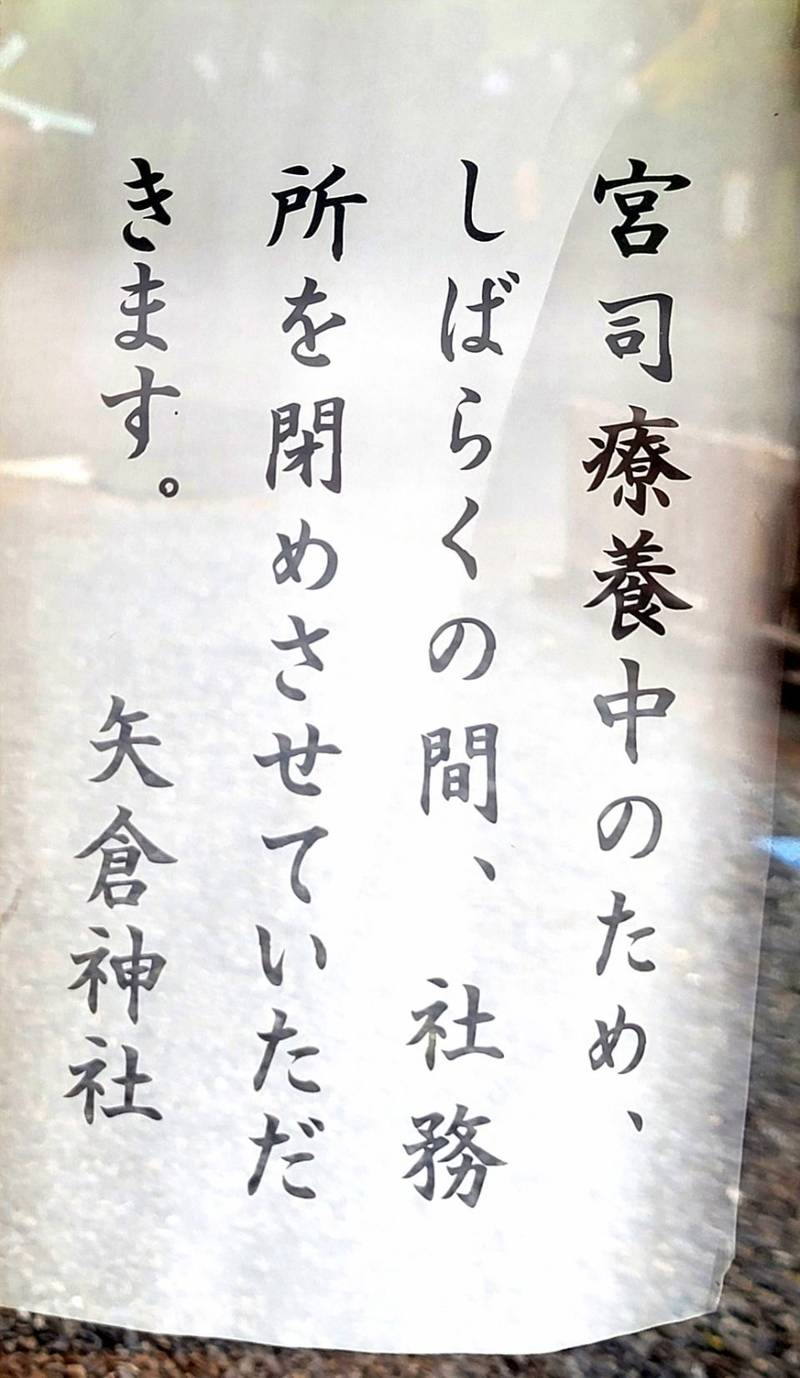 宮司療養中のため、
しばらくの間、社務
所を閉めさせていただ
きます。 矢倉神社